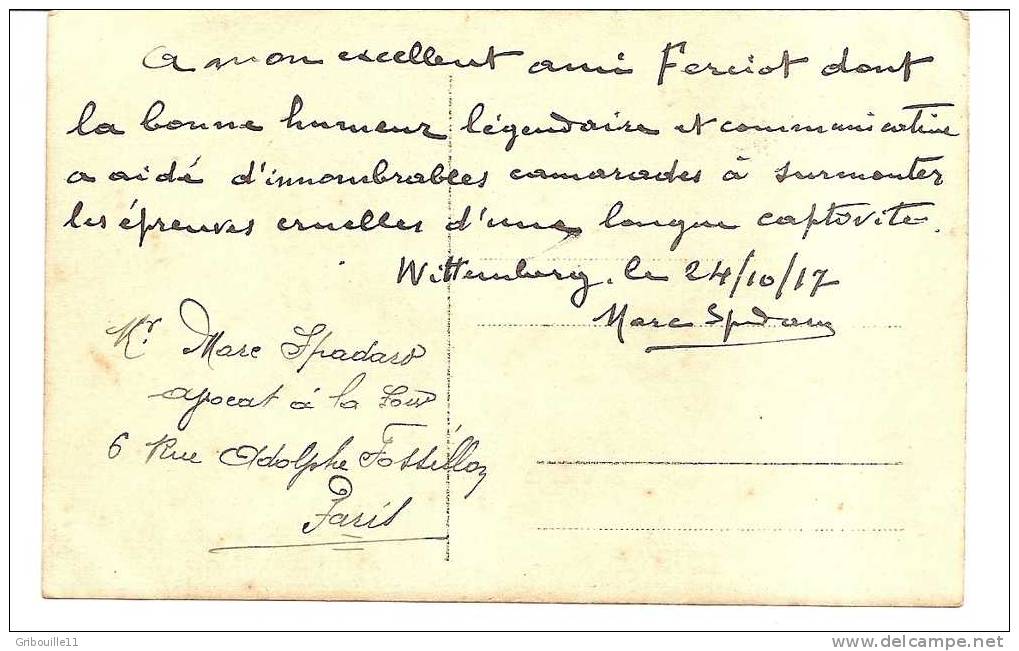 A mon excellent ami Ferciot dont
la bonne humeur légendaire et communicative
a aidé d'innombrables camarades à surmonter
les épreuves cruelles d'une longue captivité.
Wittemberg, le 24/10/17
Marc Spadaro
Mr Marc Spadaro
avocat à la Cour
6 Rue Adolphe
Paris
Gribouille11
http://www.delcampe.net